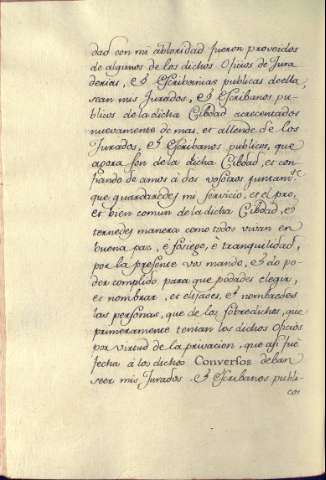 dad con mi abtoridad fueron proveidos
de algunos de los dichos Oficios de Jura
derias, é Escribanias publicas de ella,
sean mis Jurados, é Escribanos pu-
blicos de la dicha Cibdad acrecentados
nuevamente de mas, et allende de los
Jurados, é Escribanos publicos, que
agora son de la dicha Cibdad, et con
fiando de amos á dos vosotros juntamte
que guardaredes mi servicio, et el pro,
et bien comun de la dicha Cibdad, é
ternedes manera como todos vivan en
buena paz, é sosiego, é tranquilidad,
por la presente vos mando, é do po-
der complido para que podades elegir,
et nombrar, et elijades, é nombredes
las personas, que de los sobredichos, que
primeramente tenian los dichos oficios
por virtud de la privacion, que asi fue
fecha á los dichos Conversos deban
seer mis Jurados é Escribanos publi-
cos